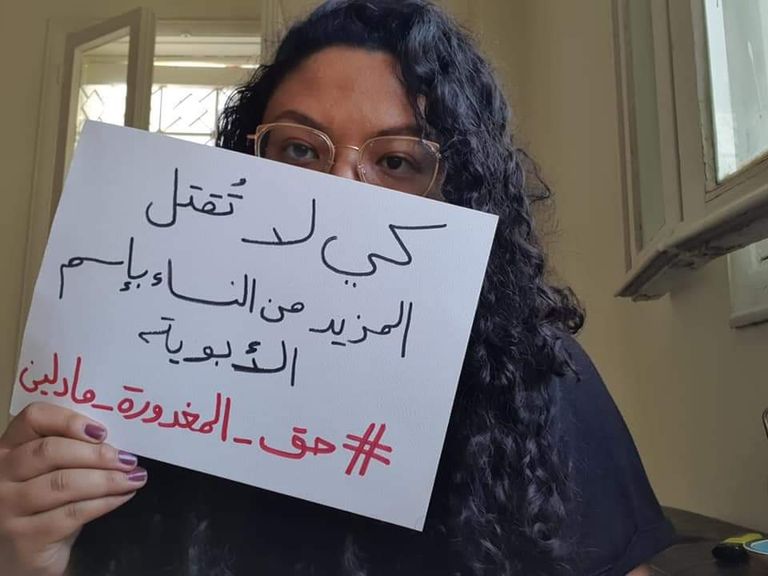 كي لا تُقتل
المزيد من النساء بإسم
الأبوية
#حق_المغدورة_مادلين